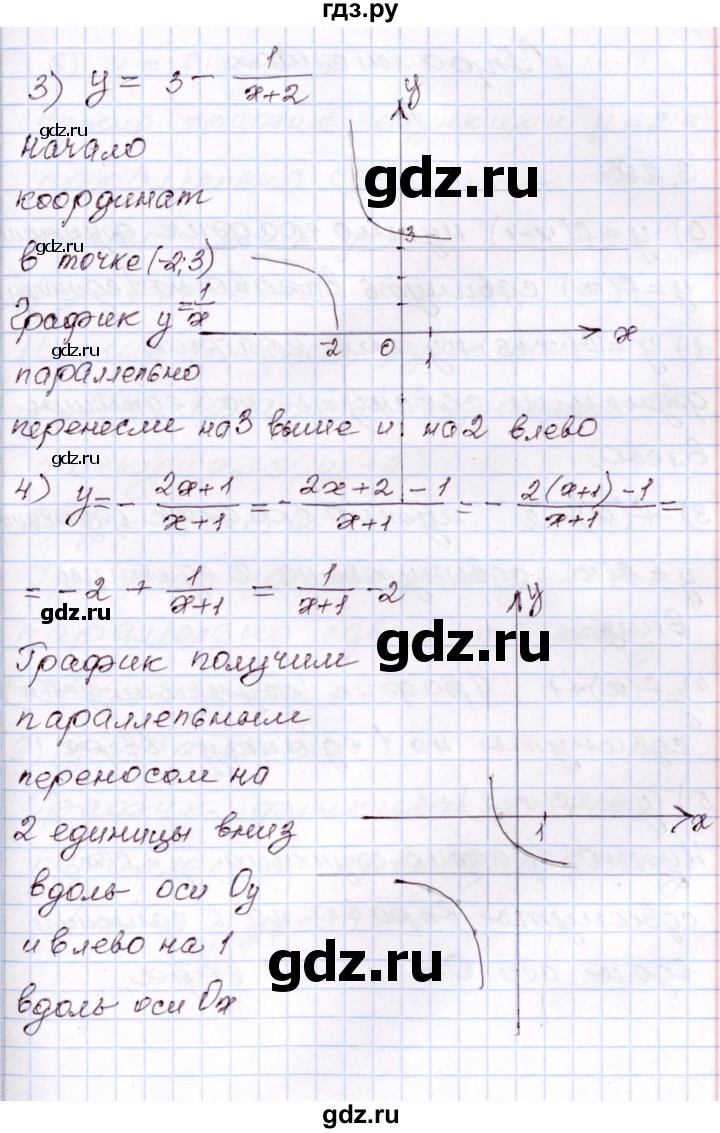 гдз.ру
3) y = 3 - 1/(x+2)
y
gdz.ru
начало
gdz.ru
координат
gdz.ru
3
в точке (-2;3)
График y = 1/x
gdz.ru
-2 0 1 x
параллельно
перенесли на 3 выше и на 2 влево
gdz.ru
4) y = - (2x+1)/(x+1) = - (2x+2-1)/(x+1) = - (2(x+1)-1)/(x+1) =
= -2 + 1/(x+1) = 1/(x+1) -2
gdz.ru
y
gdz.ru
График получим
параллельным
переносом на
2 единицы вниз
1 x
вдоль оси Oy
и влево на 1
gdz.ru
gdz.ru
вдоль оси Ox
gdz.ru